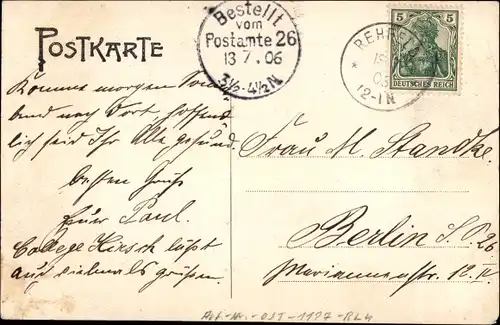 POSTKARTE
Bestellt
vom
Postamte 26
13 7. 06
3½-4½N
REHFE
12-1N
5 5
DEUTSCHES REICH
Komme morgen Sonn
abend nach dort hoffent
lich seid Ihr Alle gesund.
besten Gruß
Euer Paul.
College Hirsch läßt
auch vielmals grüßen.
Frau M. Standke.
Berlin S.O. 26
Mariannenstr. 12. II.